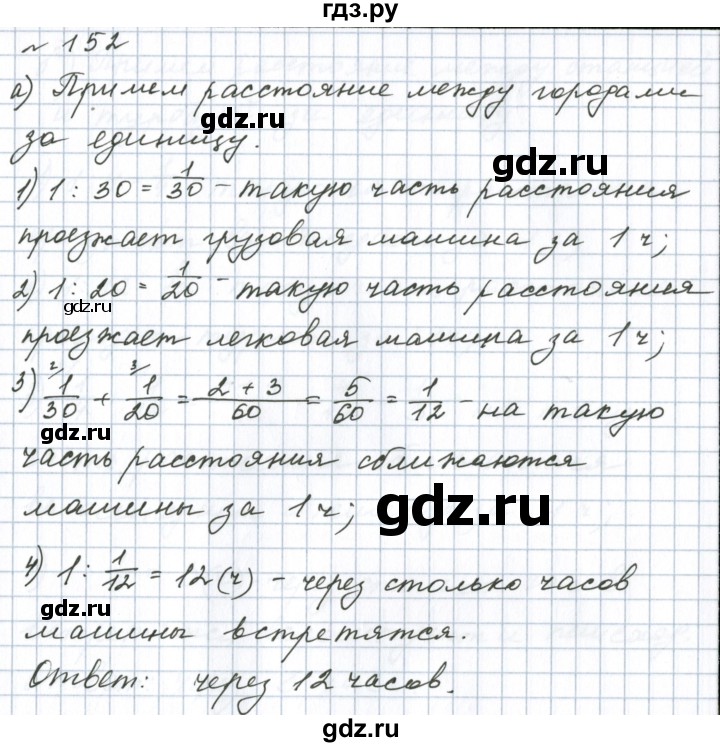 гдз.ру
№ 152
а) Примем расстояние между городами
за единицу.
gdz.ru
1) 1 : 30 = 1/30 - такую часть расстояния
проезжает грузовая машина за 1 ч;
2) 1 : 20 = 1/20 - такую часть расстояния
gdz.ru
проезжает легковая машина за 1 ч;
gdz.ru
3) ²⁄ 1/30 + ³⁄ 1/20 = (2 + 3)/60 = 5/60 = 1/12 - на такую
gdz.ru
часть расстояния сближаются
машины за 1 ч;
gdz.ru
4) 1 : 1/12 = 12 (ч) - через столько часов
gdz.ru
машины встретятся.
Ответ: через 12 часов.
gdz.ru
gdz.ru